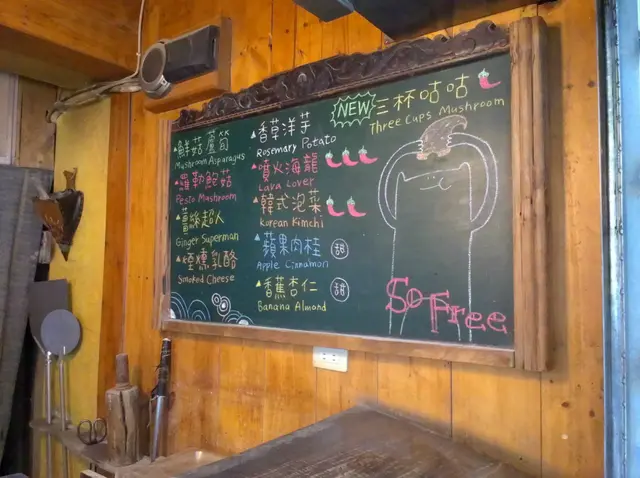 鮮菇蘆筍
Mushroom Asparagus
羅勒鮑菇
Pesto Mushroom
薑絲超人
Ginger Superman
煙燻乳酪
Smoked Cheese
香草洋芋
Rosemary Potato
噴火海龍
Lava Lover
韓式泡菜
Korean Kimchi
蘋果肉桂 甜
Apple Cinnamon
香蕉杏仁 甜
Banana Almond
NEW 三杯咕咕
Three Cups Mushroom
So Free